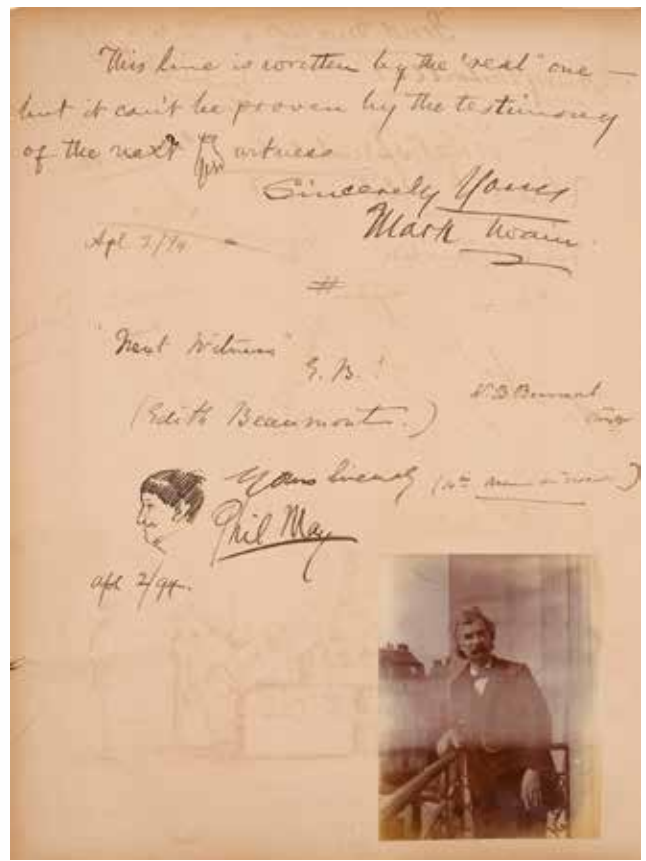 This line is written by the "real" one —
but it can't be proven by the testimony
of the next witness
Sincerely Yours
Mark Twain.
Apl 2/94
#
"Next Witness"
G. B.!
(Edith Beaumont.)
Yours Sincerely
Phil May
Apl 2/94.